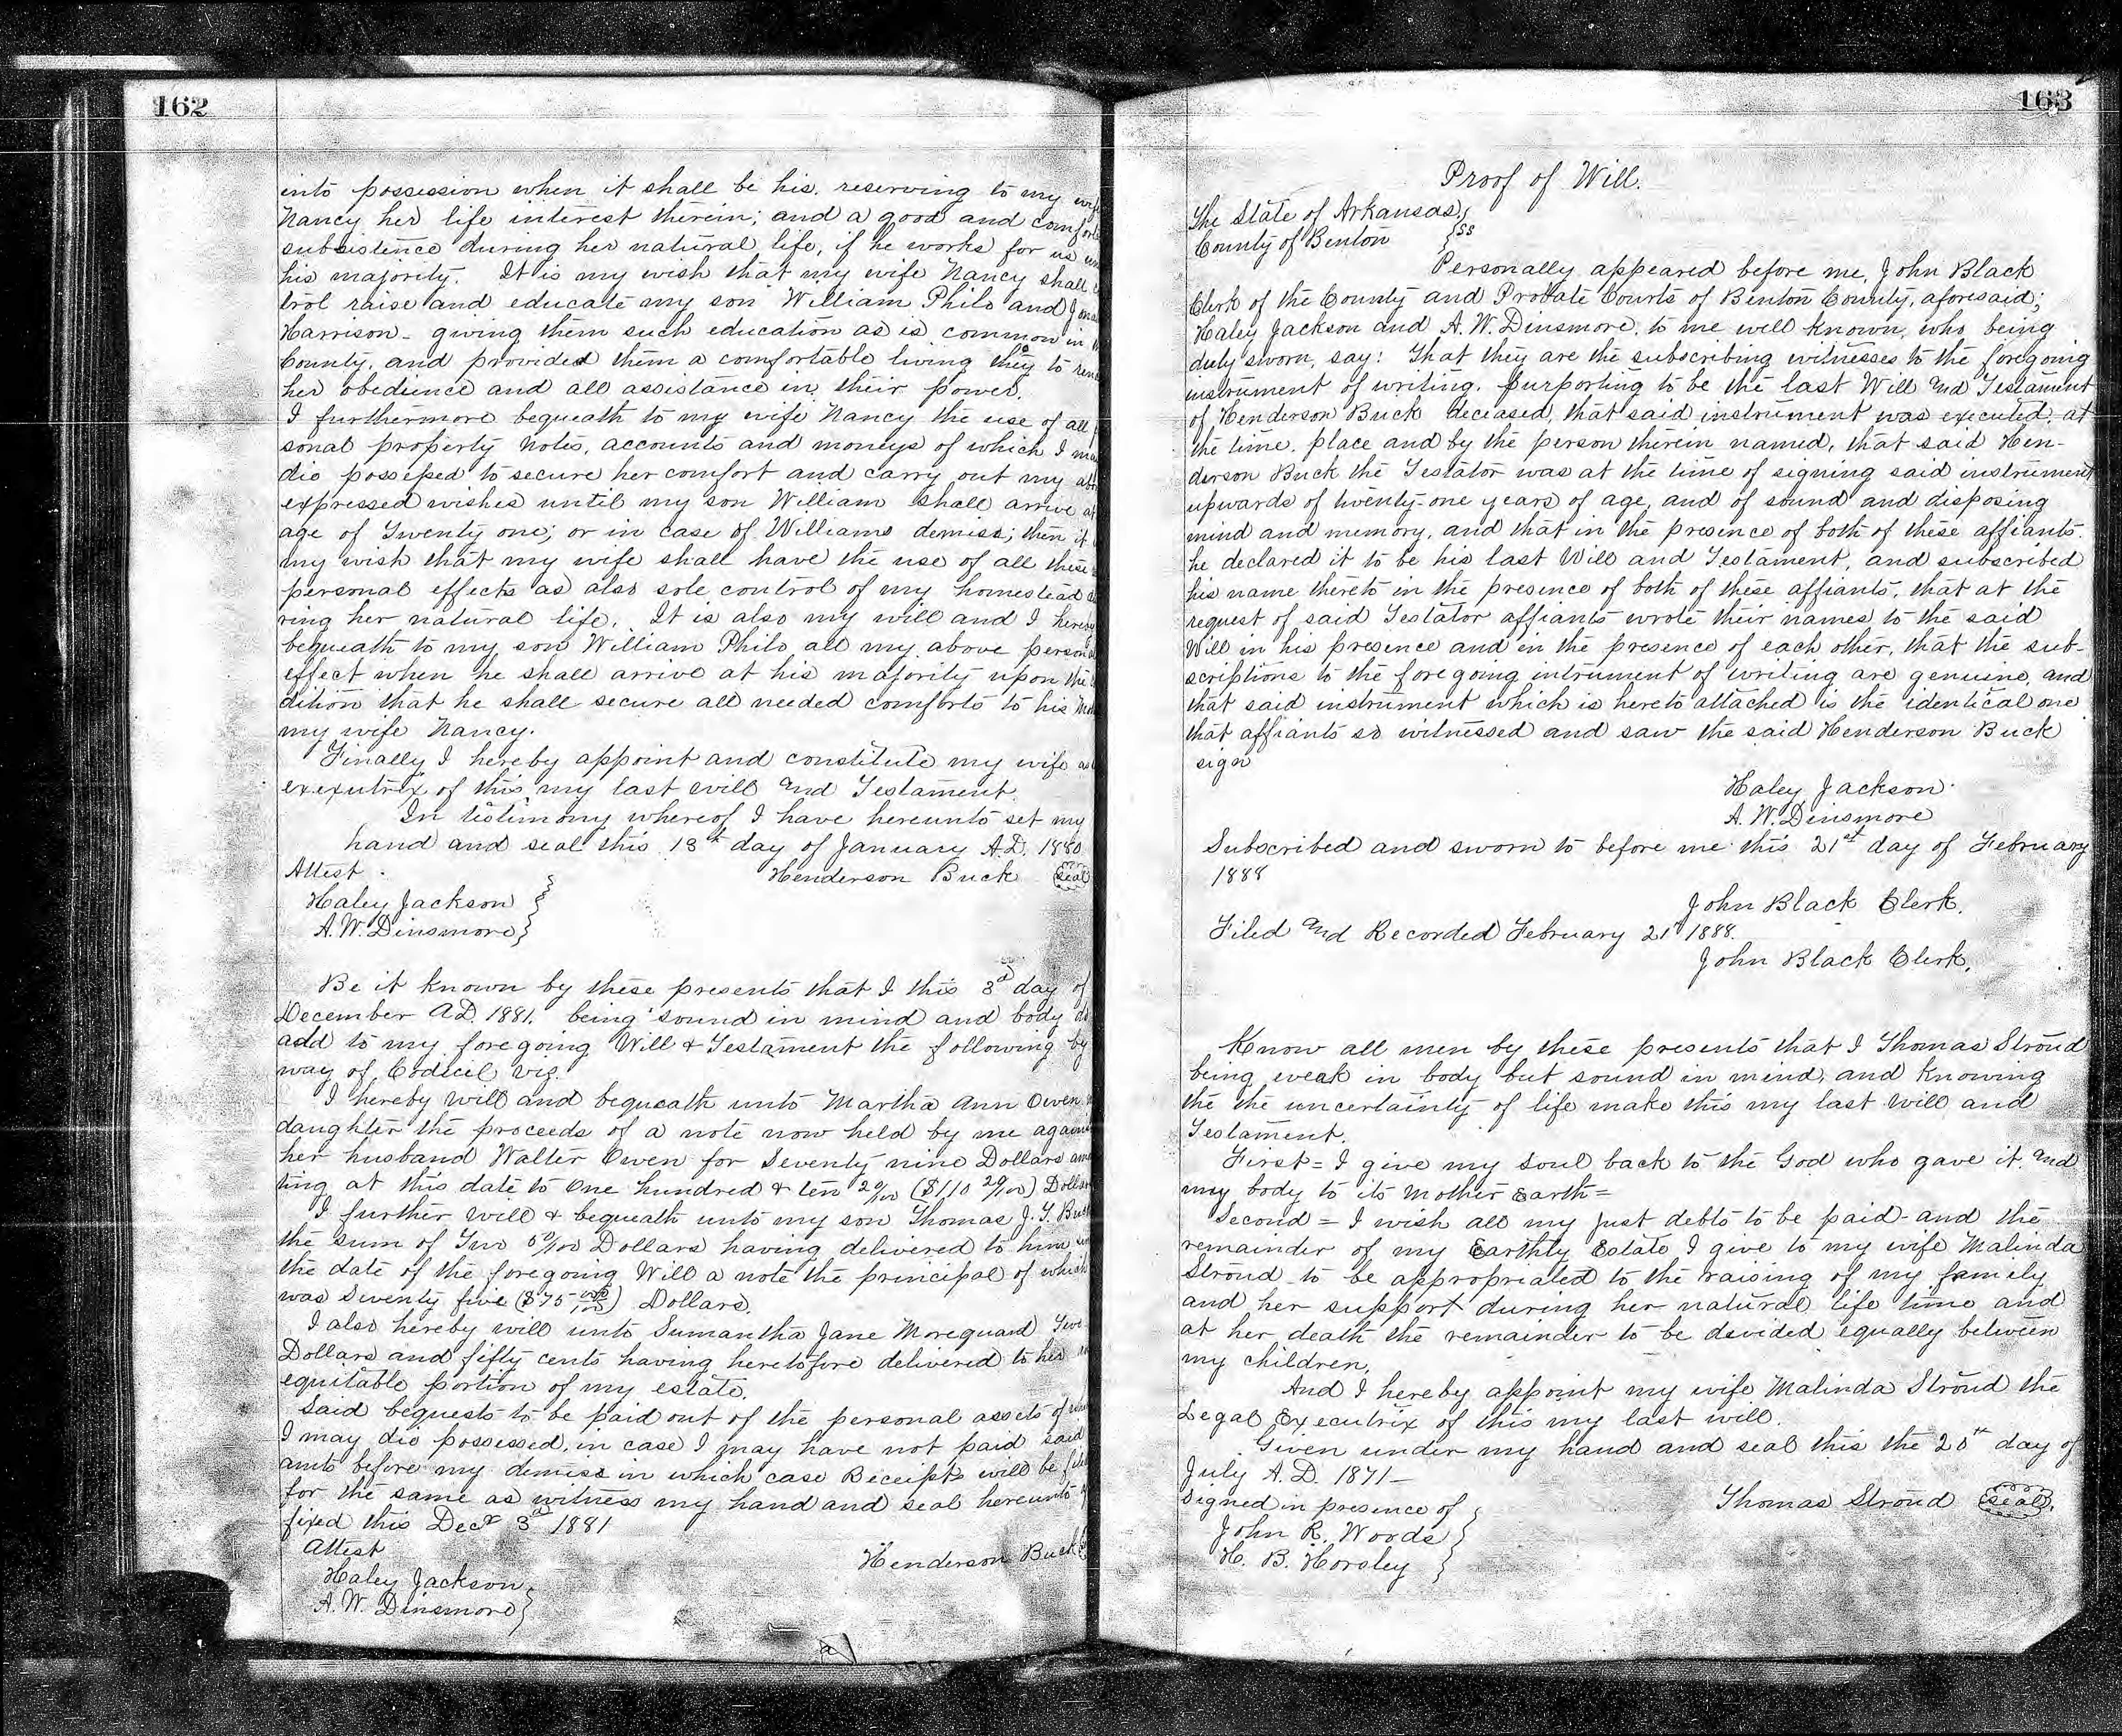 162
into possession when it shall be his, reserving to my wife
Nancy her life interest therein; and a good and
subsistence during her natural life, if he works for us
his majority. It is my wish that my wife Nancy shall
trol raise and educate my son William Philo and
Harrison - giving them such education as is common in
County, and provided them a comfortable living they to
her obedience and all assistance in their power.
I furthermore bequeath to my wife Nancy the use of all
sonal property notes, accounts and moneys of which I may
die possessed to secure her comfort and carry out my
expressed wishes until my son William shall arrive at
age of Twenty one; or in case of Williams demise; then it
my wish that my wife shall have the use of all these
personal effects as also sole control of my homestead
ring her natural life. It is also my will and I hereby
bequeath to my son William Philo all my above personal
effect when he shall arrive at his majority upon the
dition that he shall secure all needed comforts to his
my wife Nancy.
Finally I hereby appoint and constitute my wife as
exexutrix of this my last will and Testament.
In testimony whereof I have hereunto set my
hand and seal this 13th day of January A.D. 1880
Attest. Henderson Buck seal
Haley Jackson
A. W. Dinsmore
Be it known by these presents that I this 3d day of
December A.D. 1881. being sound in mind and body do
add to my foregoing Will & Testament the following by
way of Codicil viz.
I hereby will and bequeath unto Martha Ann Owen
daughter the proceeds of a note now held by me against
her husband Walter Owen for Seventy nine Dollars
ting at this date to One hundred & ten 20/100 ($110 20/100) Dollars
I further will & bequeath unto my son Thomas J. Y. Buck
the sum of Two 50/100 Dollars having delivered to him
the date of the foregoing Will a note the principal of which
was Seventy five ($75 00/100) Dollars.
I also hereby will unto Sumantha Jane Morequard Two
Dollars and fifty cents having heretofore delivered to her
equitable portion of my estate.
Said bequests to be paid out of the personal assets of
I may die possessed, in case I may have not paid said
amts before my demise in which case Receipts will be
for the same as witness my hand and seal hereunto
fixed this Decr 3d 1881
Attest Henderson Buck
Haley Jackson
A. W. Dinsmore
163
Proof of Will.
The State of Arkansas
County of Benton } SS
Personally appeared before me, John Black
Clerk of the County and Probate Courts of Benton County, aforesaid;
Haley Jackson and A. W. Dinsmore, to me well known, who being
duly sworn, say: That they are the subscribing witnesses to the foregoing
instrument of writing, purporting to be the last Will and Testament
of Henderson Buck deceased, that said instrument was executed at
the time, place and by the person therein named, that said Hen-
derson Buck the Testator was at the time of signing said instrument
upwards of twenty-one years of age, and of sound and disposing
mind and memory, and that in the presence of both of these affiants.
he declared it to be his last Will and Testament, and subscribed
his name thereto in the presence of both of these affiants, that at the
request of said Testator affiants wrote their names to the said
Will in his presence and in the presence of each other, that the sub-
scriptions to the foregoing intrument of writing are genuine, and
that said instrument which is hereto attached is the identical one
that affiants so witnessed and saw the said Henderson Buck
sign
Haley Jackson
A. W. Dinsmore
Subscribed and sworn to before me this 21st day of February
1888
John Black Clerk.
Filed and Recorded February 21st 1888.
John Black Clerk.
Know all men by these presents that I Thomas Stroud
being weak in body but sound in mind, and knowing
the the uncertainty of life make this my last will and
Testament.
First = I give my soul back to the God who gave it, and
my body to its mother Earth =
Second = I wish all my just debts to be paid - and the
remainder of my Earthly Estate I give to my wife Malinda
Stroud to be appropriated to the raising of my family
and her support during her natural life time and
at her death the remainder to be devided equally between
my children.
And I hereby appoint my wife Malinda Stroud the
Legal Executrix of this my last will.
Given under my hand and seal this the 28th day of
July A.D. 1871 -
Signed in presence of Thomas Stroud seal
John R. Woods
H. B. Horsley